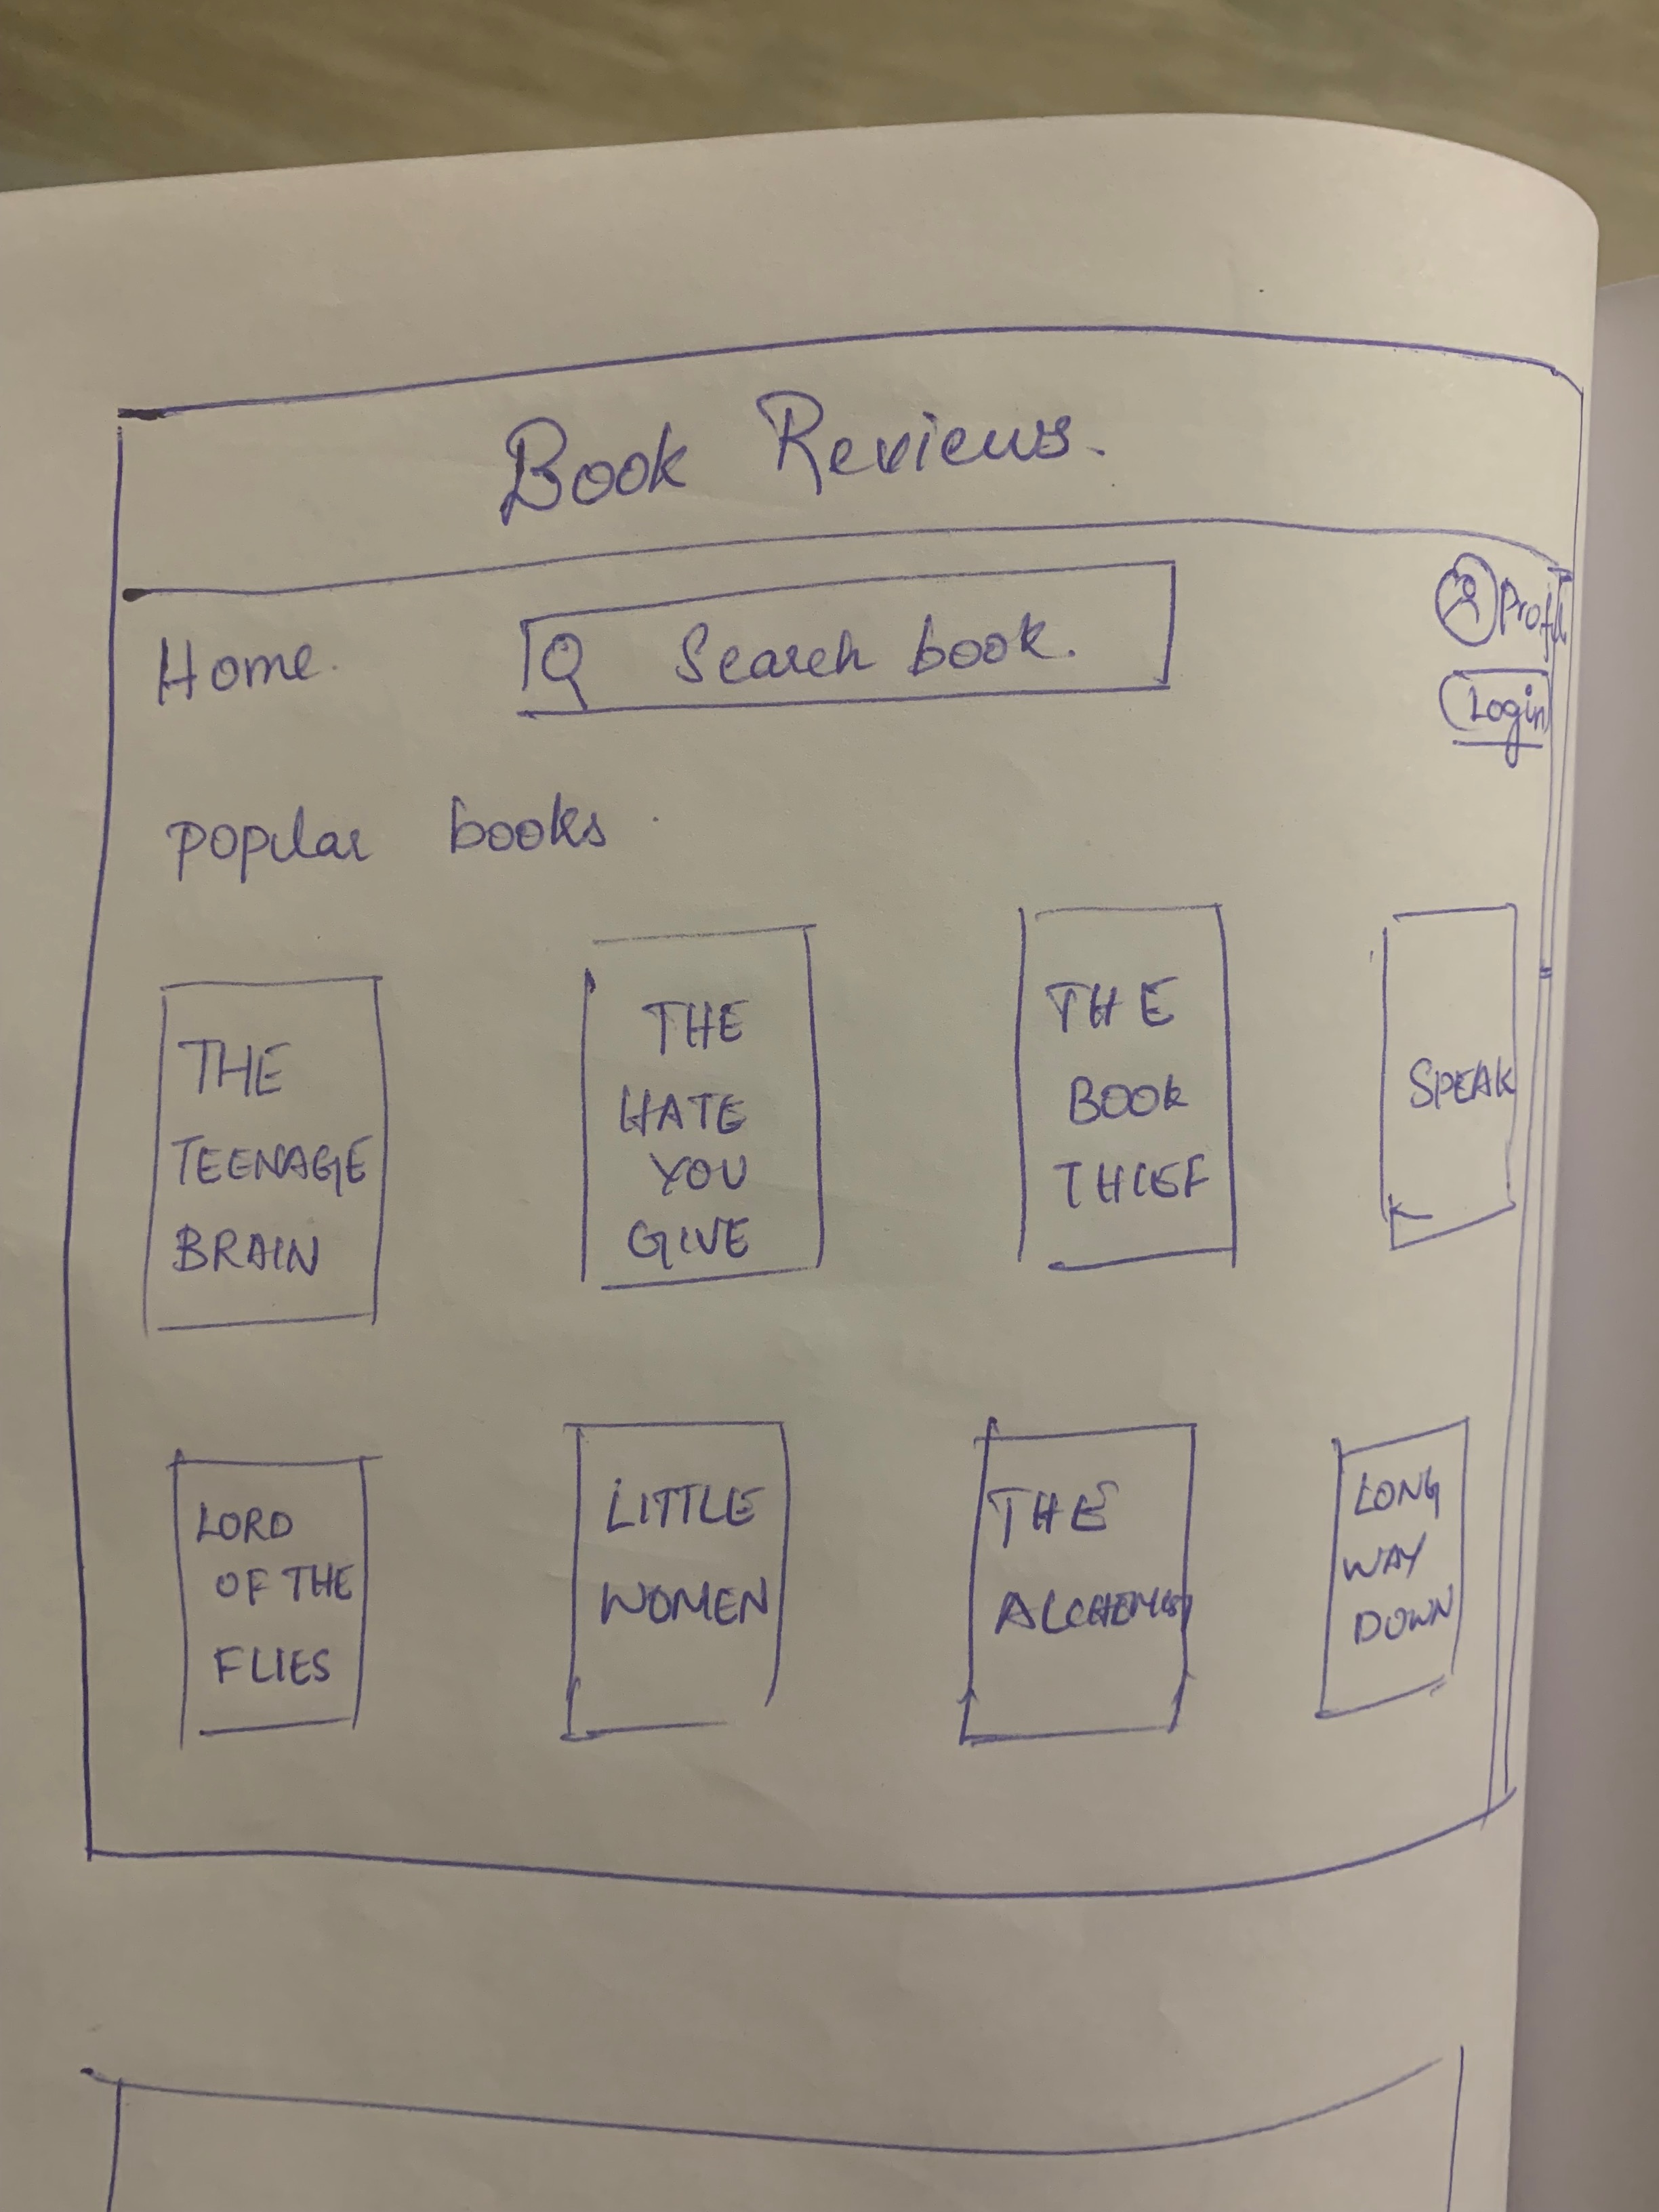 Book Reviews.
Home.
Search book.
Profile
Login
popular books
THE
TEENAGE
BRAIN
THE
HATE
YOU
GIVE
THE
BOOK
THIEF
SPEAK
LORD
OF THE
FLIES
LITTLE
WOMEN
THE
ALCHEMIST
LONG
WAY
DOWN